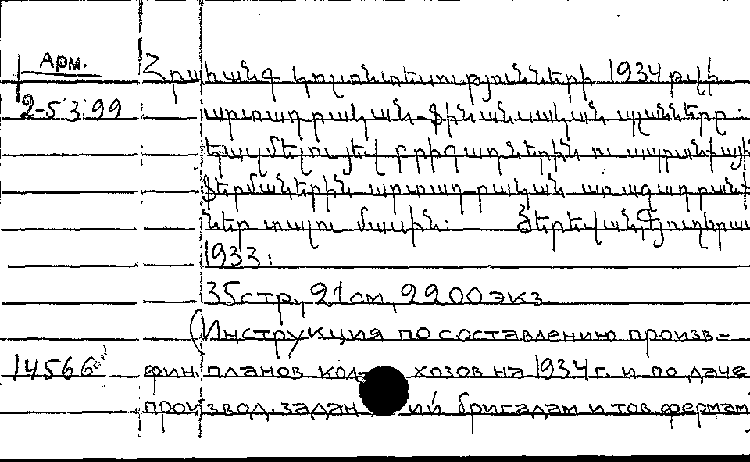 Арм.
2-53 99
Հրահանգ կոլտնտեսությունների 1934 թվի
արտադրական-ֆինանսական պլանները
կազմելու յեվ բրիգադներին ու ապրանքային
ֆերմաներին արտադրական առաջադրանք-
ներ տալու մասին: Յերեվան,
1933:
35стр., 21см, 2200экз
(Инструкция по составлению произв-
14566 фин планов колхозов на 1934г. и по даче
производ. заданий бригадам и тов фермам